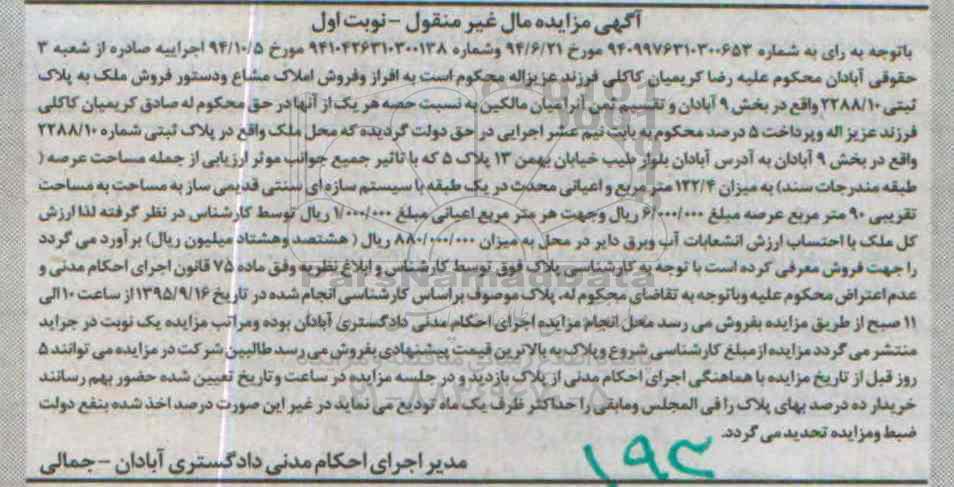 آگهی مزایده مال غیر منقول - نوبت اول
باتوجه به رای به شماره ۹۴۰۹۹۷۶۳۱۰۳۰۰۶۵۳ مورخ ۹۴/۶/۲۱ وشماره ۹۴۱۰۴۲۶۳۱۰۳۰۰۱۳۸ مورخ ۹۴/۱۰/۵ اجراییه صادره از شعبه ۳
حقوقی آبادان محکوم علیه رضا کریمیان کاکلی فرزند عزیزاله محکوم است به افراز وفروش املاک مشاع ودستور فروش ملک به پلاک
ثبتی ۲۲۸۸/۱۰ واقع در بخش ۹ آبادان و تقسیم ثمن آبرا میان مالکین به نسبت حصه هر یک از آنها در حق محکوم له صادق کریمیان کاکلی
فرزند عزیز اله وپرداخت ۵ درصد محکوم به بابت نیم عشر اجرایی در حق دولت گردیده که محل ملک واقع در پلاک ثبتی شماره ۲۲۸۸/۱۰
واقع در بخش ۹ آبادان به آدرس آبادان بلوار طیب خیابان بهمن ۱۳ پلاک ۵ که با تاثیر جمیع جوانب موثر ارزیابی از جمله مساحت عرصه (
طبقه مندرجات سند) به میزان ۱۲۲/۴ متر مربع و اعیانی محدث در یک طبقه با سیستم سازه ای سنتی قدیمی ساز به مساحت به مساحت
تقریبی ۹۰ متر مربع عرصه مبلغ ۶/۰۰۰/۰۰۰ ریال وجهت هر متر مربع اعیانی مبلغ ۱/۰۰۰/۰۰۰ ریال توسط کارشناس در نظر گرفته لذا ارزش
کل ملک با احتساب ارزش انشعابات آب وبرق دایر در محل به میزان ۸۸۰/۰۰۰/۰۰۰ ریال ( هشتصد وهشتاد میلیون ریال) برآورد می گردد
را جهت فروش معرفی کرده است با توجه به کارشناسی پلاک فوق توسط کارشناس و ابلاغ نظریه وفق ماده ۷۵ قانون اجرای احکام مدنی و
عدم اعتراض محکوم علیه وباتوجه به تقاضای محکوم له. پلاک موصوف براساس کارشناسی انجام شده در تاریخ ۱۳۹۵/۹/۱۶ از ساعت ۱۰ الی
۱۱ صبح از طریق مزایده بفروش می رسد محل انجام مزایده اجرای احکام مدنی دادگستری آبادان بوده ومراتب مزایده یک نوبت در جراید
منتشر می گردد مزایده از مبلغ کارشناسی شروع وپلاک به بالاترین قیمت پیشنهادی بفروش می رسد طالبین شرکت در مزایده می توانند ۵
روز قبل از تاریخ مزایده با هماهنگی اجرای احکام مدنی از پلاک بازدید و در جلسه مزایده در ساعت وتاریخ تعیین شده حضور بهم رسانند
خریدار ده درصد بهای پلاک را فی المجلس ومابقی را حداکثر ظرف یک ماه تودیع می نماید در غیر این صورت درصد اخذ شده بنفع دولت
ضبط ومزایده تجدید می گردد.
مدیر اجرای احکام مدنی دادگستری آبادان - جمالی
ParsNamadData